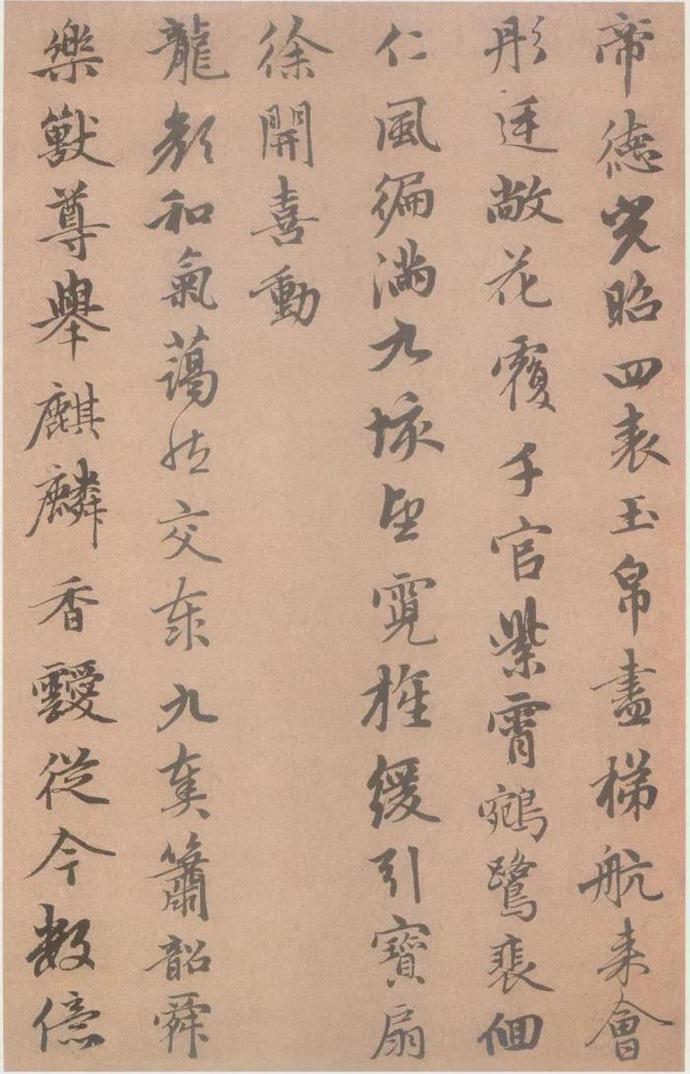 帝德光昭四表玉帛盡梯航来會
彤廷敞花覆千官紫霄鵷鷺裴佪
仁風徧満九垓望霓旌緩引寶扇
徐開喜動
龍顔和氣藹然交泰九奏簫韶舜
樂獸尊舉麒麟香靉從今數億